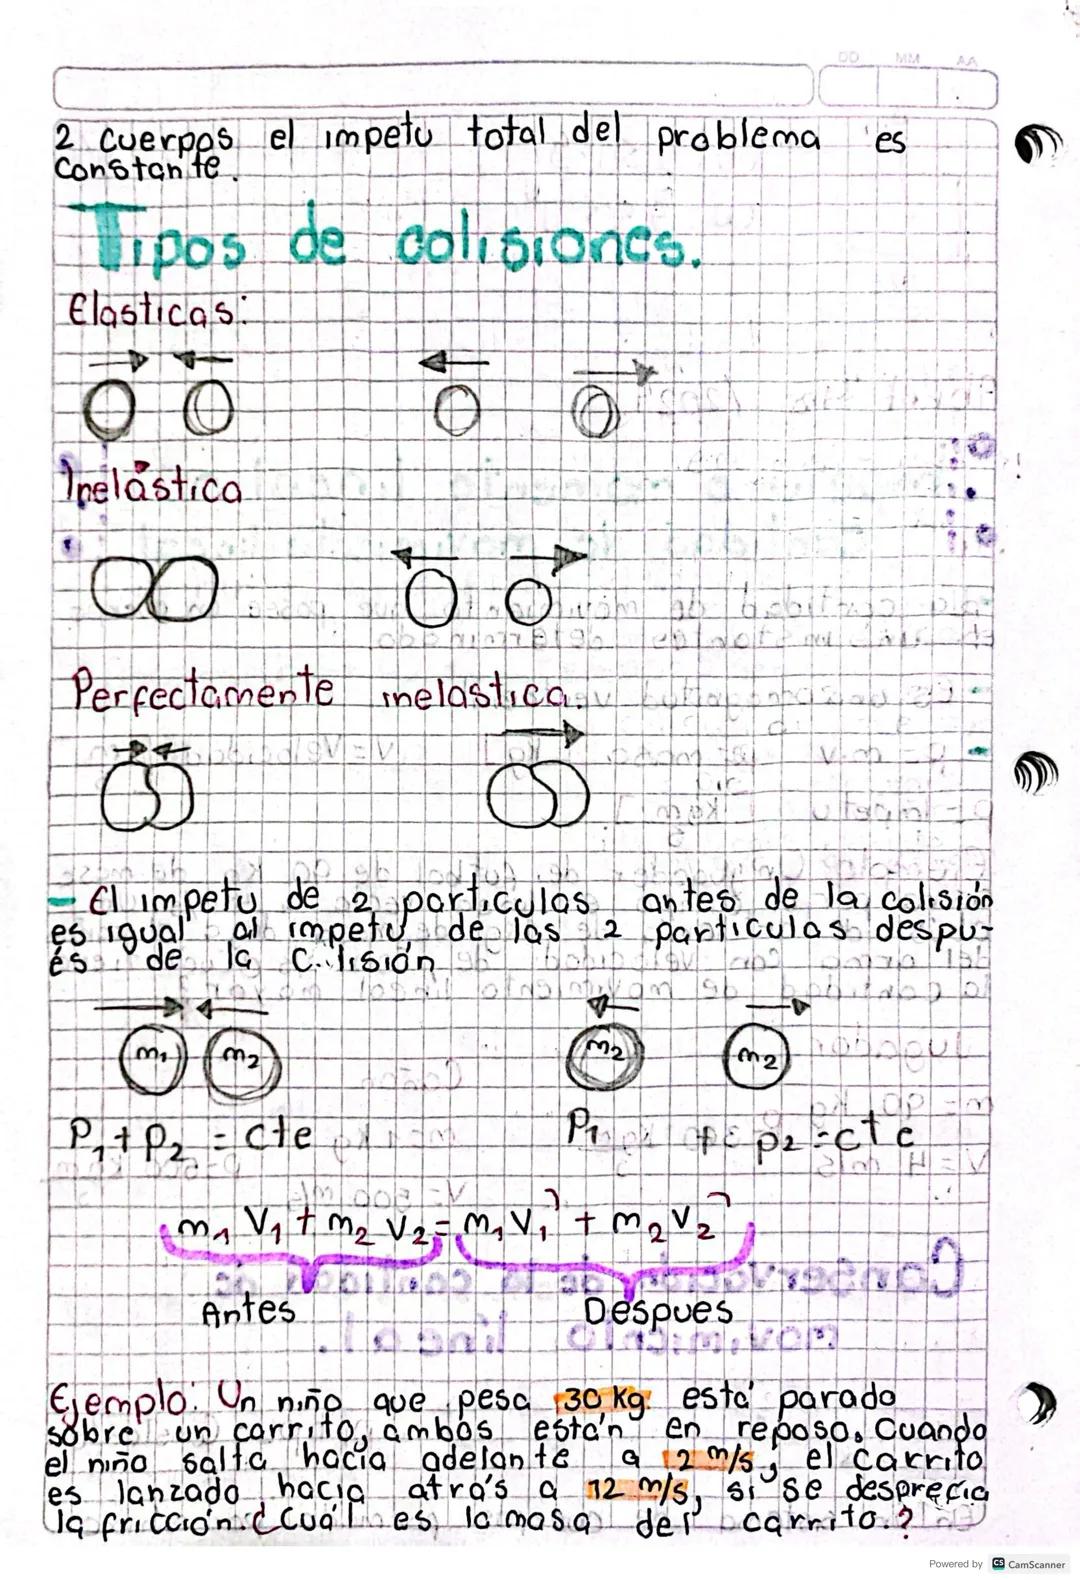 DD MM AA
2 cuerpos el impetu total del problema es
constante.
Tipos de colisiones.
Elasticas:
Inelástica
Perfectamente inelastica.
- El impetu de 2 particulas antes de la colisión
es igual al impetu de las 2 particulas despu-
és de la colisión
m₁ m₂ m₂ m₂
P₁ + P₂ = cte P₁ + P₂ = cte
m₁ V₁ + m₂ V₂ = m₁ V₁' + m₂ V₂'
Antes Despues
Ejemplo: Un niño que pesa 30 kg. está parado
sobre un carrito, ambos están en reposo. Cuando
el niño salta hacia adelante a 2 m/s, el carrito
es lanzado hacia atrás a 12 m/s, si se desprecia
la fricción ¿Cuál es la masa del carrito.?
Powered by CS CamScanner